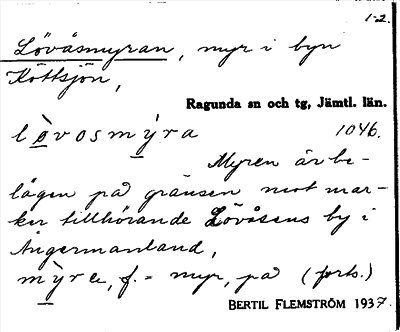 1-2.
Lövåsmyran, myr i byn
Köttsjön,
Ragunda sn och tg, Jämtl. län.
lòvosmy̆ra 1046.
Myren är be-
lägen på gränsen mot mar-
ker tillhörande Lövåsens by i
Ångermanland,
my̆ra, f. = myr, på (forts.)
BERTIL FLEMSTRÖM 1937.